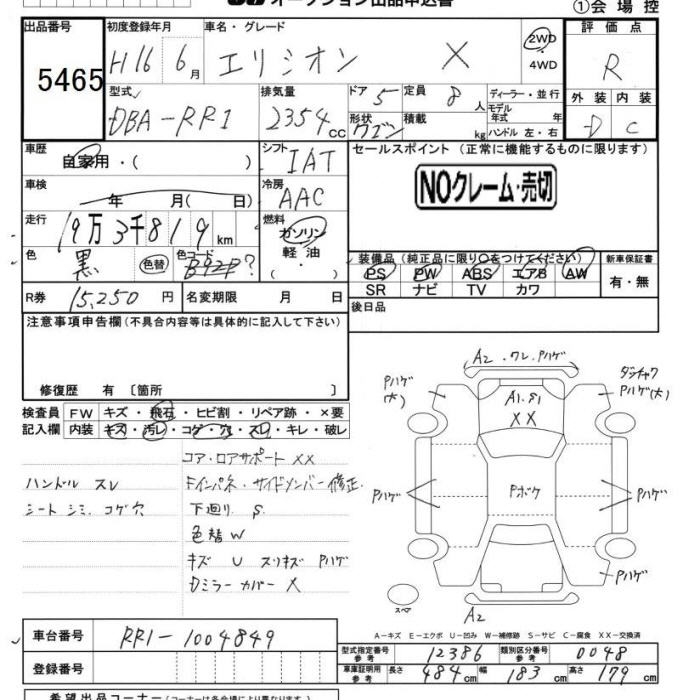 オークション出品申込書
①会場控
出品番号 初度登録年月 車名・グレード 評価点
5465 H16 6月 エリシオン X 2WD 4WD R
型式 排気量 ドア 定員 ディーラー・並行 外装 内装
DBA-RR1 2354cc 5 8人 モデル年式 年 D C
形状 ワゴン 積載 kg ハンドル 左・右
車歴 自家用・( ) シフト IAT セールスポイント (正常に機能するものに限ります)
車検 年 月( 日) 冷房 AAC NOクレーム・売切
走行 19万3千819km 燃料 ガソリン 軽油 ・( )
色 黒 色替 色コード B92P? 装備品 (純正品に限り○をつけてください) 新車保証書
PS PW ABS エアB AW 有・無
SR ナビ TV カワ
R券 15,250円 名変期限 月 日 後日品
注意事項申告欄 (不具合内容等は具体的に記入して下さい)
修復歴 有 〔箇所 〕
検査員 FW キズ・飛石・ヒビ割・リペア跡・×要
記入欄 内装 キズ・汚レ・コゲ・穴・スレ・キレ・破レ
コア・ロアサポート XX
ハンドル スレ Fインパネ・サイドメンバー修正
シート シミ コゲ穴 下廻り S
色替W
キズ U スリキズ Pハゲ
Dミラーカバー X
A2 ・ワレ、Pハゲ
Pハゲ(大)
ダッチャク Pハゲ(大)
A1.S1
XX
Pハゲ Pボケ Pハゲ
Pハゲ
スペア
A2
A-キズ E-エクボ U-凹み W-補修跡 S-サビ C-腐食 XX-交換済
車台番号 RR1-1004849
型式指定番号 参考 12386 類別区分番号 参考 0048
登録番号
車庫証明用 参考 長さ 484cm 幅 183cm 高さ 179cm
希望出品コーナー